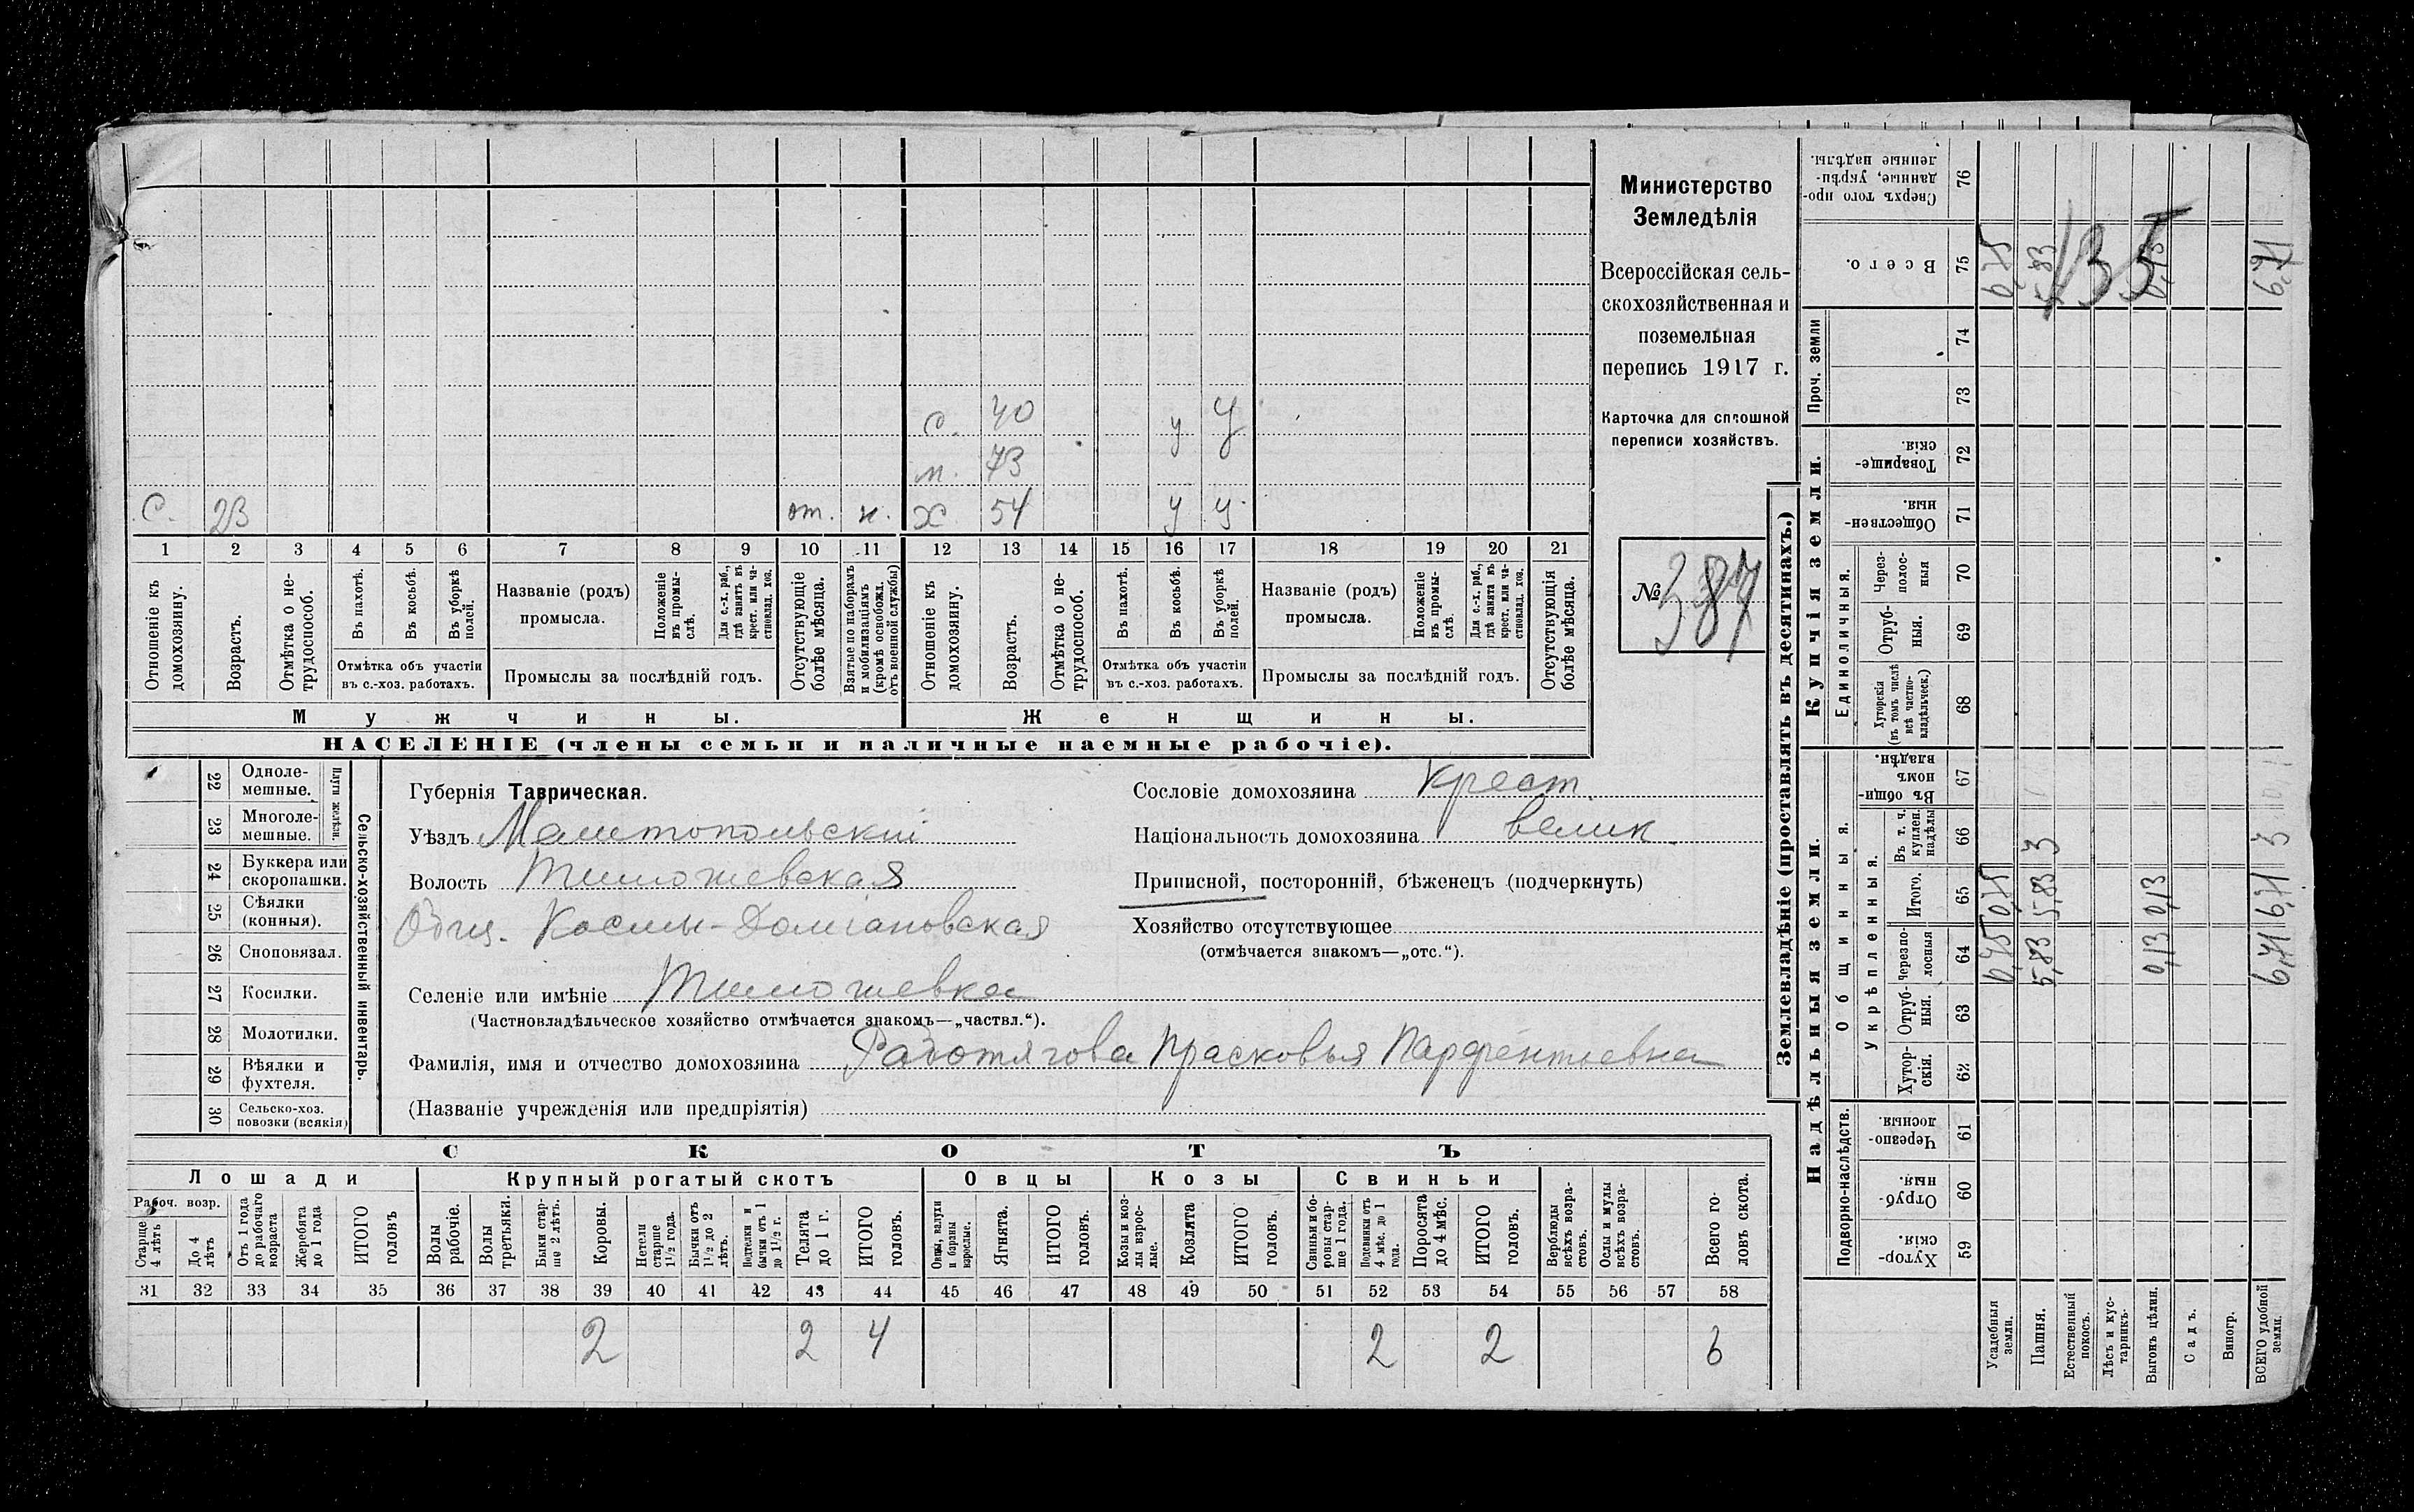 Министерство
Земледѣлія
Всероссійская сель-
скохозяйственная и
поземельная
перепись 1917 г.
Карточка для сплошной
переписи хозяйствъ.
№ 387
с. 40 у у
м. 73
с. 23 от. н. х 54 у у
1 2 3 4 5 6 7 8 9 10 11 12 13 14 15 16 17 18 19 20 21
Отношеніе къ домохозяину.
Возрастъ.
Отмѣтка о не-трудоспособ.
Въ пахотѣ.
Въ косьбѣ.
Въ уборкѣ полей.
Отмѣтка объ участіи
въ с.-хоз. работахъ.
Названіе (родъ)
промысла.
Положеніе въ промы-слѣ.
Для с.-х. раб., гдѣ занятъ въ крест. или ча-стновлад. хоз.
Промыслы за послѣдній годъ.
Отсутствующіе болѣе мѣсяца.
Взятые по наборамъ и мобилизаціямъ (кромѣ освобожд. отъ военной службы)
Отношеніе къ домохозяину.
Возрастъ.
Отмѣтка о не-трудоспособ.
Въ пахотѣ.
Въ косьбѣ.
Въ уборкѣ полей.
Отмѣтка объ участіи
въ с.-хоз. работахъ.
Названіе (родъ)
промысла.
Положеніе въ промы-слѣ.
Для с.-х. раб., гдѣ занята въ крест. или ча-стновлад. хоз.
Промыслы за послѣдній годъ.
Отсутствующія болѣе мѣсяца.
Мужчины.
Женщины.
НАСЕЛЕНІЕ (члены семьи и наличные наемные рабочіе).
22 Одноле-мешные.
23 Многоле-мешные.
Плуги желѣзн.
24 Буккера или скоропашки.
25 Сѣялки (конныя).
26 Сноповязал.
27 Косилки.
28 Молотилки.
29 Вѣялки и фухтеля.
30 Сельско-хоз. повозки (всякія)
Сельско-хозяйственный инвентарь.
Губернія Таврическая.
Уѣздъ Мелитопольскій
Волость Тимошевская
Общ. Космы-Доміановская
Селеніе или имѣніе Тимошевка
(Частновладѣльческое хозяйство отмѣчается знакомъ—„частвл.“).
Фамилія, имя и отчество домохозяина Работягова Прасковья Парфентьевна
(Названіе учрежденія или предпріятія)
Сословіе домохозяина Крест.
Національность домохозяина велик.
Приписной, посторонній, бѣженецъ (подчеркнуть)
Хозяйство отсутствующее
(отмѣчается знакомъ—„отс.“).
СКОТЪ
Лошади
Крупный рогатый скотъ
Овцы
Козы
Свиньи
Рабоч. возр.
Старше 4 лѣтъ
До 4 лѣтъ
Отъ 1 года до рабочаго возраста
Жеребята до 1 года
ИТОГО головъ
Волы рабочіе.
Волы третьяки.
Быки стар-ше 2 лѣтъ.
Коровы.
Нетели старше 1½ года.
Бычки отъ 1½ до 2 лѣтъ.
Подтелки и бычки отъ 1 до 1½ г.
Телята до 1 г.
ИТОГО головъ.
Овцы, валухи и бараны взрослые.
Ягнята.
ИТОГО головъ.
Козы и коз-лы взрос-лые.
Козлята
ИТОГО головъ.
Свиньи и бо-ровы стар-ше 1 года.
Подсвинки отъ 4 мѣс. до 1 года.
Поросята до 4 мѣс.
ИТОГО головъ.
Верблюды всѣхъ возра-стовъ.
Ослы и мулы всѣхъ возра-стовъ.
Всего го-ловъ скота.
31 32 33 34 35 36 37 38 39 40 41 42 43 44 45 46 47 48 49 50 51 52 53 54 55 56 57 58
2 2 4 2 2 6
Землевладѣніе (проставлять въ десятинахъ.)
Надѣльныя земли.
Купчія земли.
Проч. земли
Подворно-наслѣдств.
Общинныя.
Укрѣпленныя.
Единоличныя.
59 Хутор-скія.
60 Отруб-ныя.
61 Черезпо-лосныя.
62 Хутор-скія.
63 Отруб-ныя.
64 Черезпо-лосныя
65 Итого.
66 Въ т. ч. куплен. надѣлы
67 Въ общи-номъ владѣн.
68 Хуторскія (въ томъ числѣ всѣ частно-владѣльческ.)
69 Отруб-ныя.
70 Через-полос-ныя
71 Обществен-ныя.
72 Товарище-скія.
73
74
75 Всего.
76 Сверхъ того про-данные, укрѣп-ленные надѣлы.
Усадебныя земли. 0,75 0,75 0,75
Пашня. 5,83 5,83 3 5,83
Естественный покосъ.
Лѣсъ и кус-тарникъ.
Выгонъ цѣлин. 0,13 0,13 0,13
Садъ.
Виногр.
ВСЕГО удобной земли. 6,71 6,71 3 6,71
135